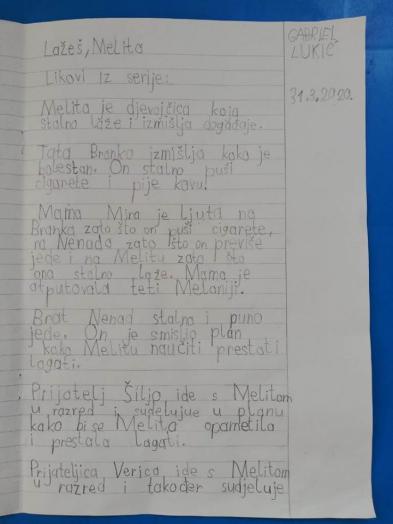 Lažeš, Melita
GABRIEL
LUKIĆ
31.3.2020.
Likovi iz serije:
Melita je djevojčica koja
stalno laže i izmišlja događaje.
Tata Branko izmišlja kako je
bolestan. On stalno puši
cigarete i pije kavu.
Mama Mira je ljuta na
Branka zato što on puši cigarete,
na Nenada zato što on previše
jede i na Melitu zato što
ona stalno laže. Mama je
otputovala teti Melaniji.
Brat Nenad stalno i puno
jede. On je smislio plan
kako Melitu naučiti prestati
lagati.
Prijatelj Šiljo ide s Melitom
u razred i sudjeluje u planu
kako bi se Melita opametila
i prestala lagati.
Prijateljica Verica ide s Melitom
u razred i također sudjeluje